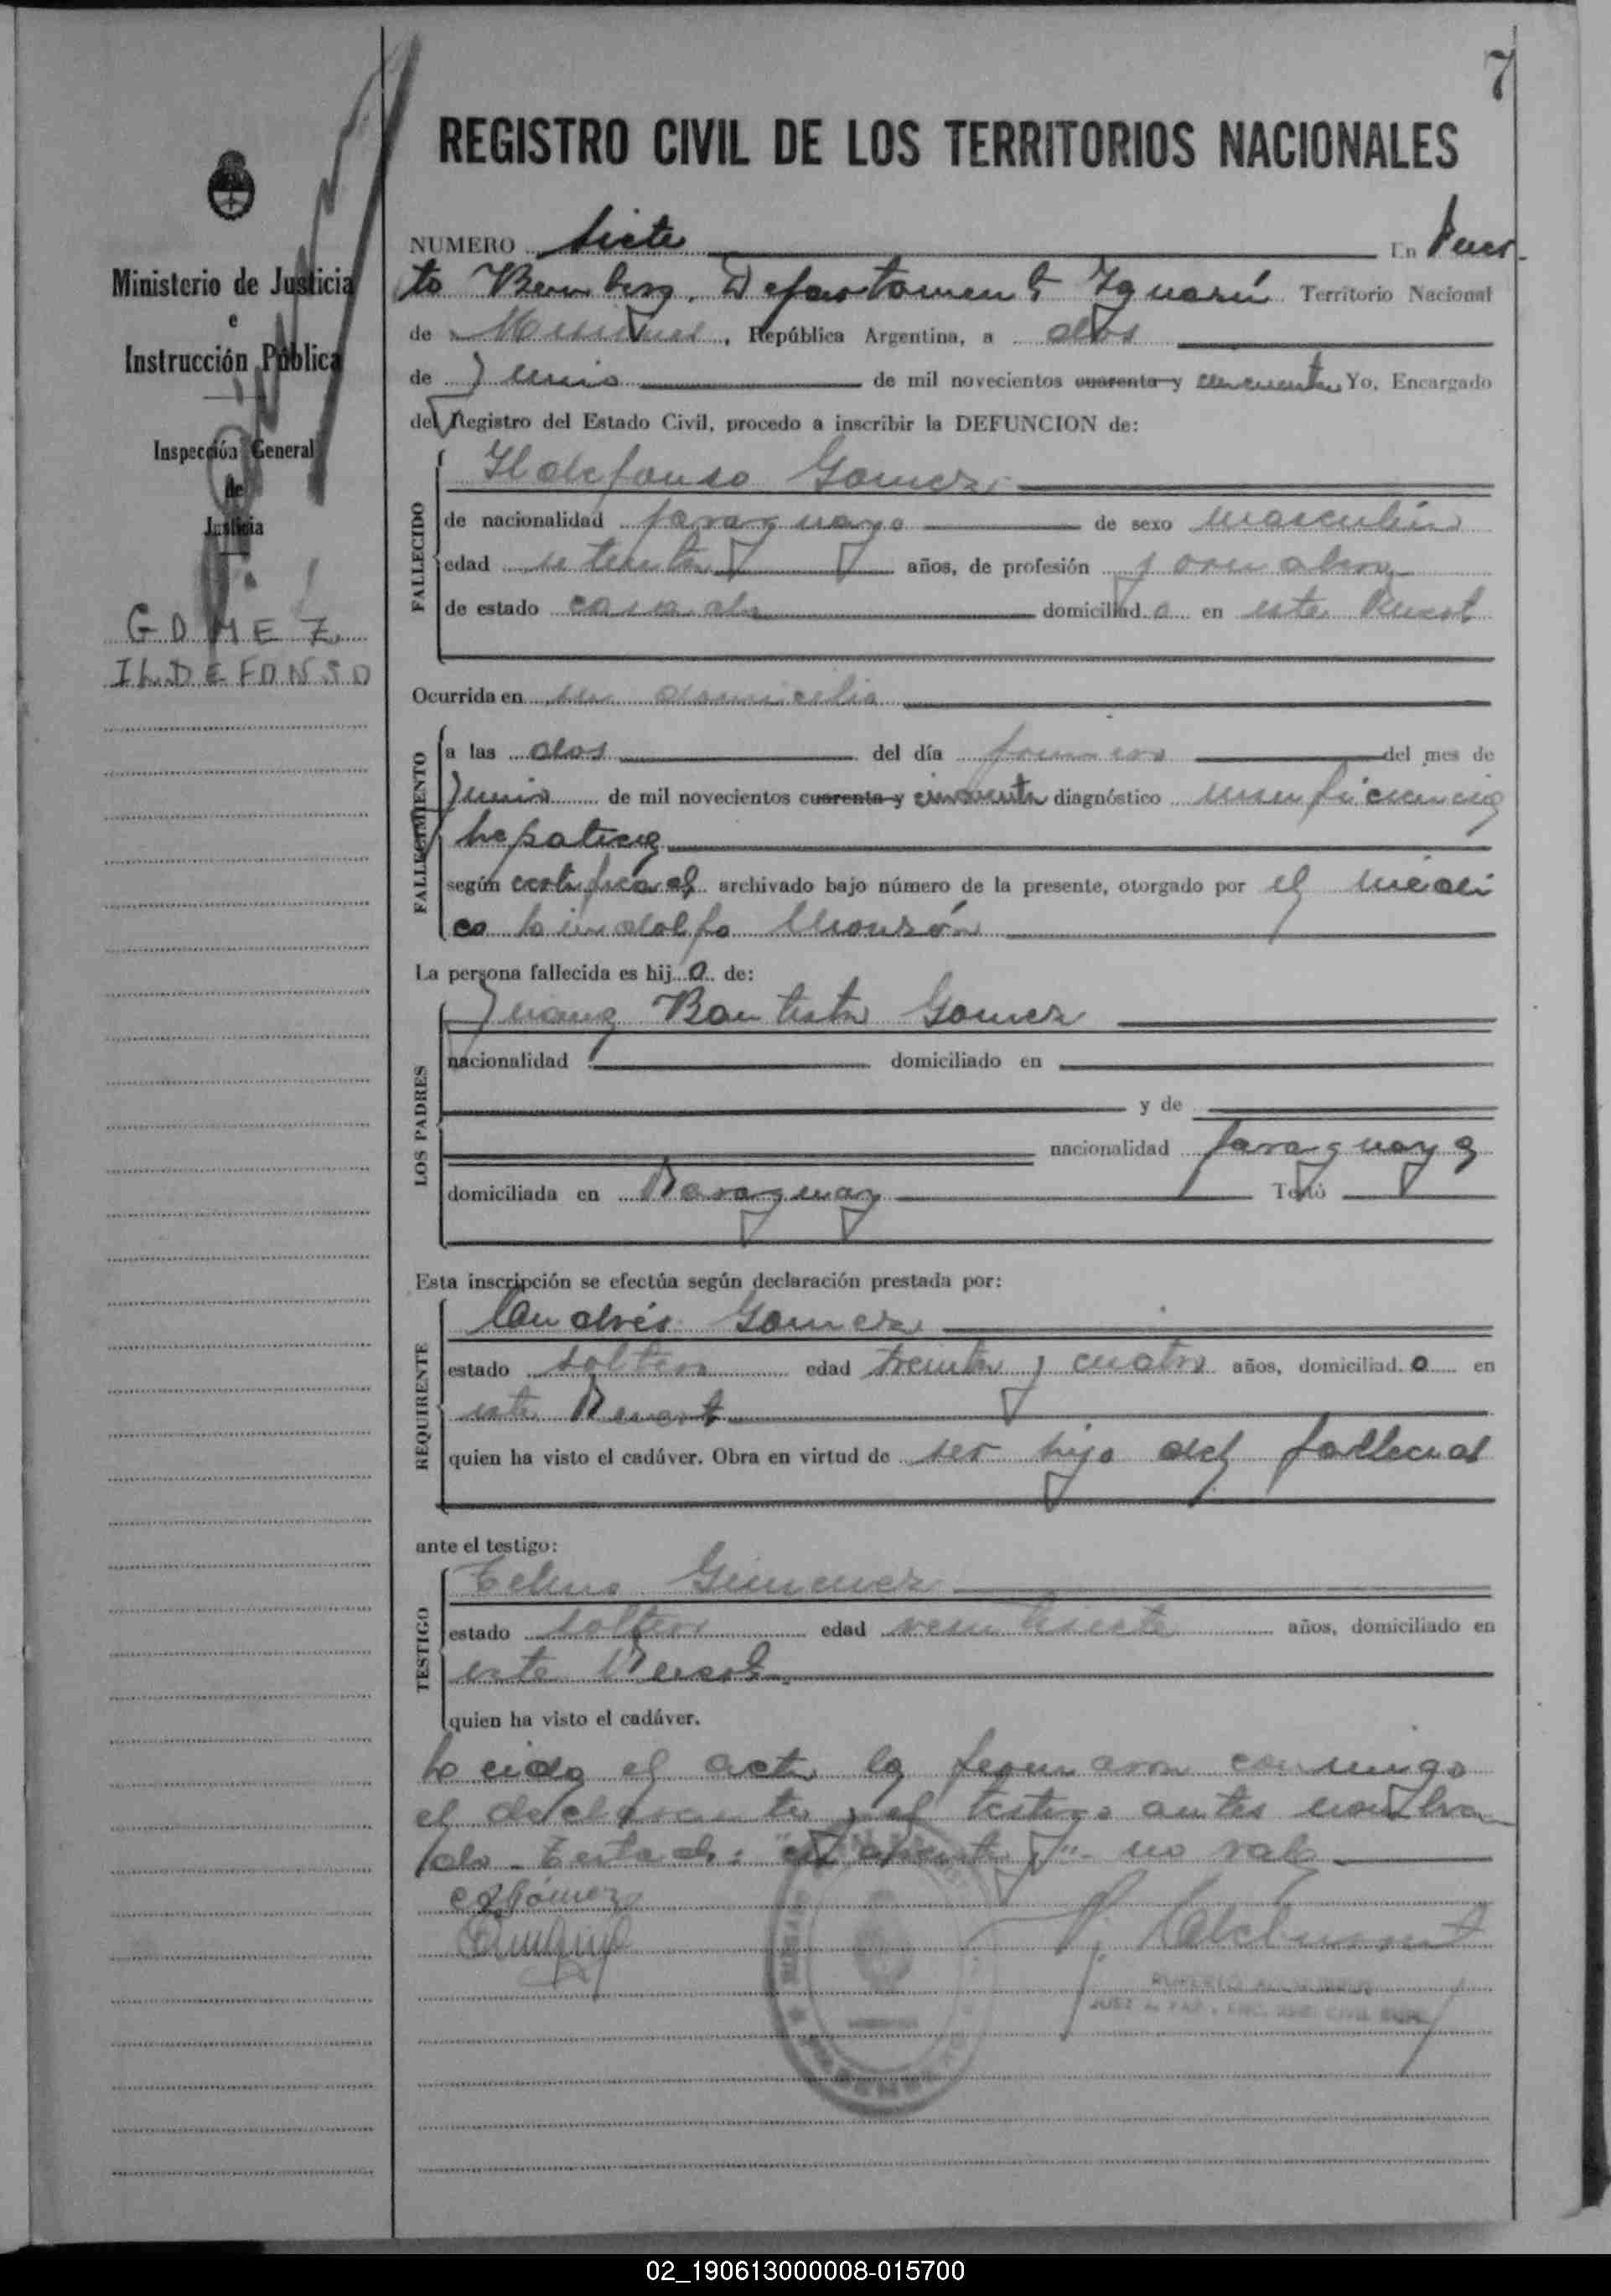 7
REGISTRO CIVIL DE LOS TERRITORIOS NACIONALES
Ministerio de Justicia
e
Instrucción Pública
Inspección General
de
Justicia
GOMEZ
ILDEFONSO
NUMERO Siete En Puer-
to Bemberg, Departamento Iguazú Territorio Nacional
de Misiones, República Argentina, a dos
de Junio de mil novecientos cuarenta y cincuenta Yo, Encargado
del Registro del Estado Civil, procedo a inscribir la DEFUNCION de:
FALLECIDO
Ildefonso Gomez
de nacionalidad paraguayo de sexo masculino
edad setenta años, de profesión jornalero
de estado casado domiciliado en este Puerto
Ocurrida en su domicilio
FALLECIMIENTO
a las dos del día primero del mes de
Junio de mil novecientos cuarenta y cincuenta diagnóstico insuficiencia
hepatica
según certificado archivado bajo número de la presente, otorgado por el médi
co Lindolfo Monzón
La persona fallecida es hijo de:
LOS PADRES
Juana Bautista Gomez
nacionalidad domiciliado en
y de
nacionalidad paraguaya
domiciliada en Paraguay Testó
Esta inscripción se efectúa según declaración prestada por:
REQUIRENTE
Andrés Gomez
estado soltero edad treinta y cuatro años, domiciliado en
este Puerto
quien ha visto el cadáver. Obra en virtud de ser hijo del fallecido
ante el testigo:
TESTIGO
Gimenez
estado soltero edad veintisiete años, domiciliado en
este Puerto
quien ha visto el cadáver.
Leida el acta la firmaron conmigo
el declarante y el testigo antes nombra
do - Testado: "cuarenta y" - no vale
Gómez
JUEZ de PAZ
02_190613000008-015700